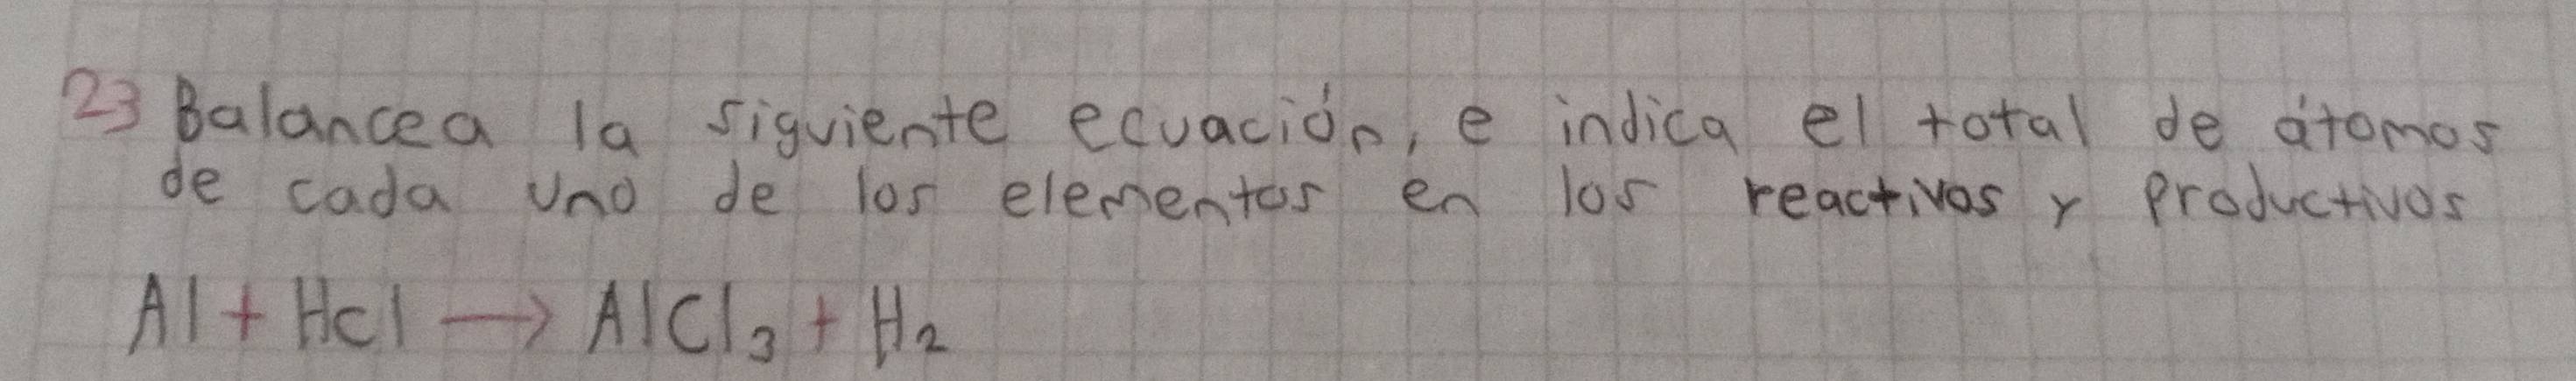 23 Balancea la siguiente ecuación, e indica el total de átomos
de cada uno de los elementos en los reactivos y productivos
Al + HCl → AlCl₃ + H₂